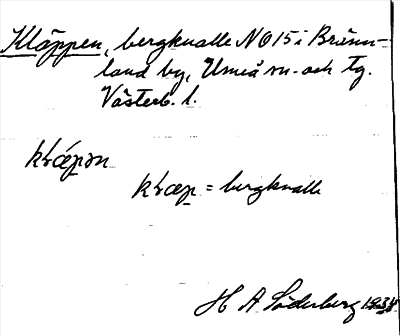 Kläppen, bergknalle NO 15 i Bränn-
land by, Umeå sn. och tg.
Västerb. l.
kɽǽpən
kɽæp = bergknalle
H A Söderberg 1934